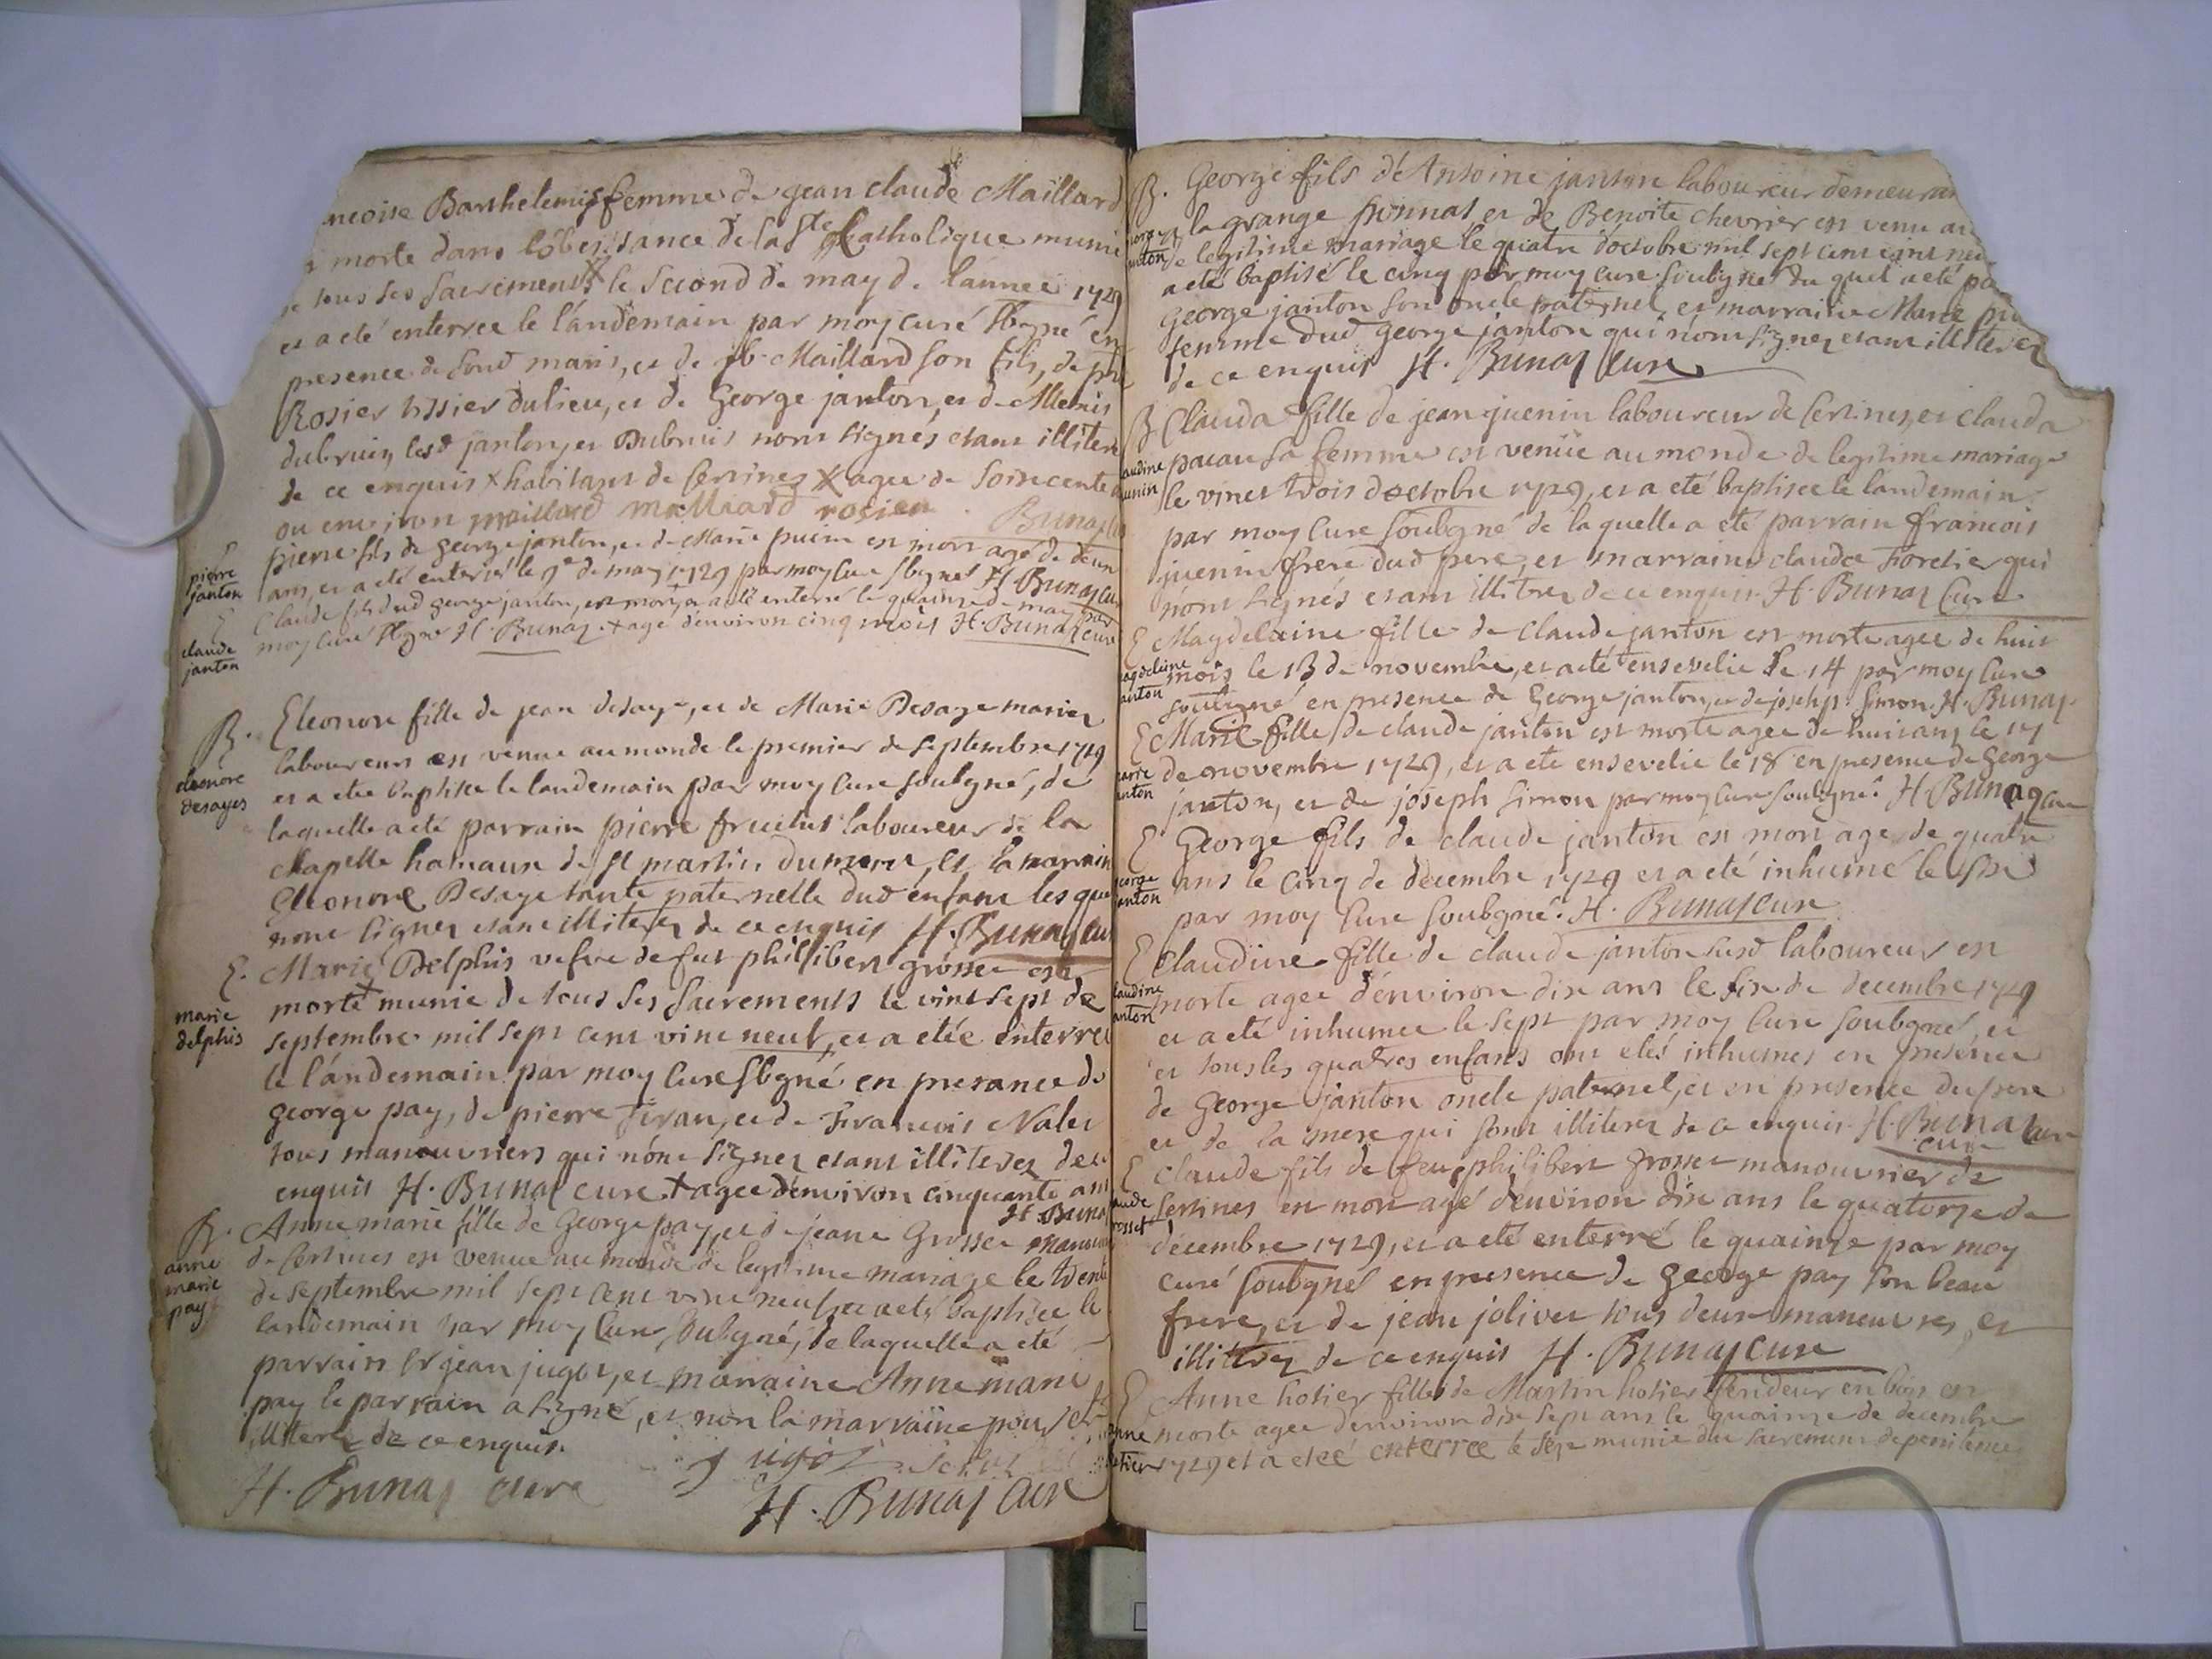 Barthelemis femme de jean claude Maillard
morte dans lóbeissance de la Ste catholique munie
tous ses sacrements le second de may de lannee 1729
et a eté enterree le lándemain par moy curé sbgné en
presence de soud maris, et de jb Maillard son fils, de
Rosier tissier dulieu, et de George janton, et de
dubruis lesd janton, et Dubruis nont signés etant illiter
de ce enquis + habitans de Certines + agee de soixcente
ou environ maillard malliard rosier Bunaz
pierre janton
pierre fils de george janton, et de Marie puein est mort agé de deux
ans, et a eté enterré le 9e de may 1729 par moy Cure sbgné H. Bunaz cu
claude janton
Claude fils dud george janton, est mort, et a eté enterré le quainze de may par
moy Curé sbgné H. Bunaz. + agé d'environ cinq mois H. Bunaz cure
B. Eleonore fille de jean desaye, et de Marie Desaye mariez
eleonore desayes
laboureurs est venue au monde le premier de septembre 1729
et a etee baptisee le landemain par moy Cure soubgné, de
laquelle a eté parrain pierre fruitus laboureur de la
chapelle hamaux de st martin dumont, et la marrain
Eleonore Desaye tante paternelle dud enfant les que
nont signez etant illiterez de ce enquis H. Bunaz cur
E. Marie Delphis vefve de fut philibert grosset est
marie delphis
morte + munie de tous ses sacrements le vint sept de
septembre mil sept cent vint neuf, et a etée enterree
le lándemain par moy Cure sbgné en presance de
george pay, de pierre, et de Francois
tous manouvriers qui nónt signez etant illiterez de ce
enquis H. Bunaz cure + agee denviron cinquante ans
H. Bunaz
B. Anne marie fille de George pay, et de jeane Grosset
anne marie pay
de Certines est venue au monde de legitime mariage le trente
de septembre mil sept cent vint neuf, et a eté baptisee le
landemain par moy Cure soubgné, de laquelle a eté
parrain Sr jean jugot, et marraine Anne marie
pay le parrain a signé, et non la marraine pour etre
illiteré de ce enquis
jugot
H. Bunaz cure
H. Bunaz cure
B. George fils d'Antoine janton laboureur demeurant
la grange, et de Benoite chevrier est venu au
de legitime mariage le quatre doctobre mil sept cent vint
a eté baptisé le cinq par moy cure soubigné du quel a eté
George janton son oncle paternel et marraine Marie
femme dud George janton qui nont signez etant illiterez
de ce enquis H. Bunaz Cure
B Clauda fille de jean juenin laboureur de Certines, et clauda
sa femme est venüe au monde de legitime mariage
le vint trois doctobre 1729, et a eté baptisee le landemain
par moy Cure soubgné de laquelle a eté parrain francois
juenin frere dud pere, et marraine clauda Foretier qui
nont signés etant illitrez de ce enquis H. Bunaz Cure
E Magdelaine fille de Claude janton est morte agee de huit
mois le 13 de novembre, et a eté ensevelie le 14 par moy Cure
soubigné en presence de George janton, et de joseph simon H. Bunaz
E Marie fille de claude janton est morte agee de huit ans le 17
de novembre 1729, et a ete ensevelie le 18 en presence de George
janton, et de joseph simon par moy Cure soubigné H. Bunaz cure
E George fils de claude janton est mort age de quatre
george janton
ans le cinq de decembre 1729 et a eté inhumé le
par moy Cure soubgné. H. Bunaz cure
E Claudine fille de claude janton susd laboureur est
morte agee dénviron dix ans le six de decembre 1729
et a eté inhumee le sept par moy Cure soubgné, et
et tous les quatres enfans ont etés inhumes en presence
de George janton oncle paternel, et en presence du pere
et de la mere qui sont illiterez de ce enquis H. Bunaz
cure
E claude fils de feu philibert grosset manouvrier de
Certines est mort agé denviron dix ans le quatorze de
decembre 1729, et a eté enterré le quainze par moy
curé soubgné en presence de george pay son beau
frere, et de jean jolivet tous deux, et
illitrez de ce enquis H. Bunaz cure
E Anne hotier fille de Martin hotier fendeur en bois est
morte agee denviron dix sept ans le quainze de decembre
1729 et a eteé enterree le seze munie du sacrement de penitence